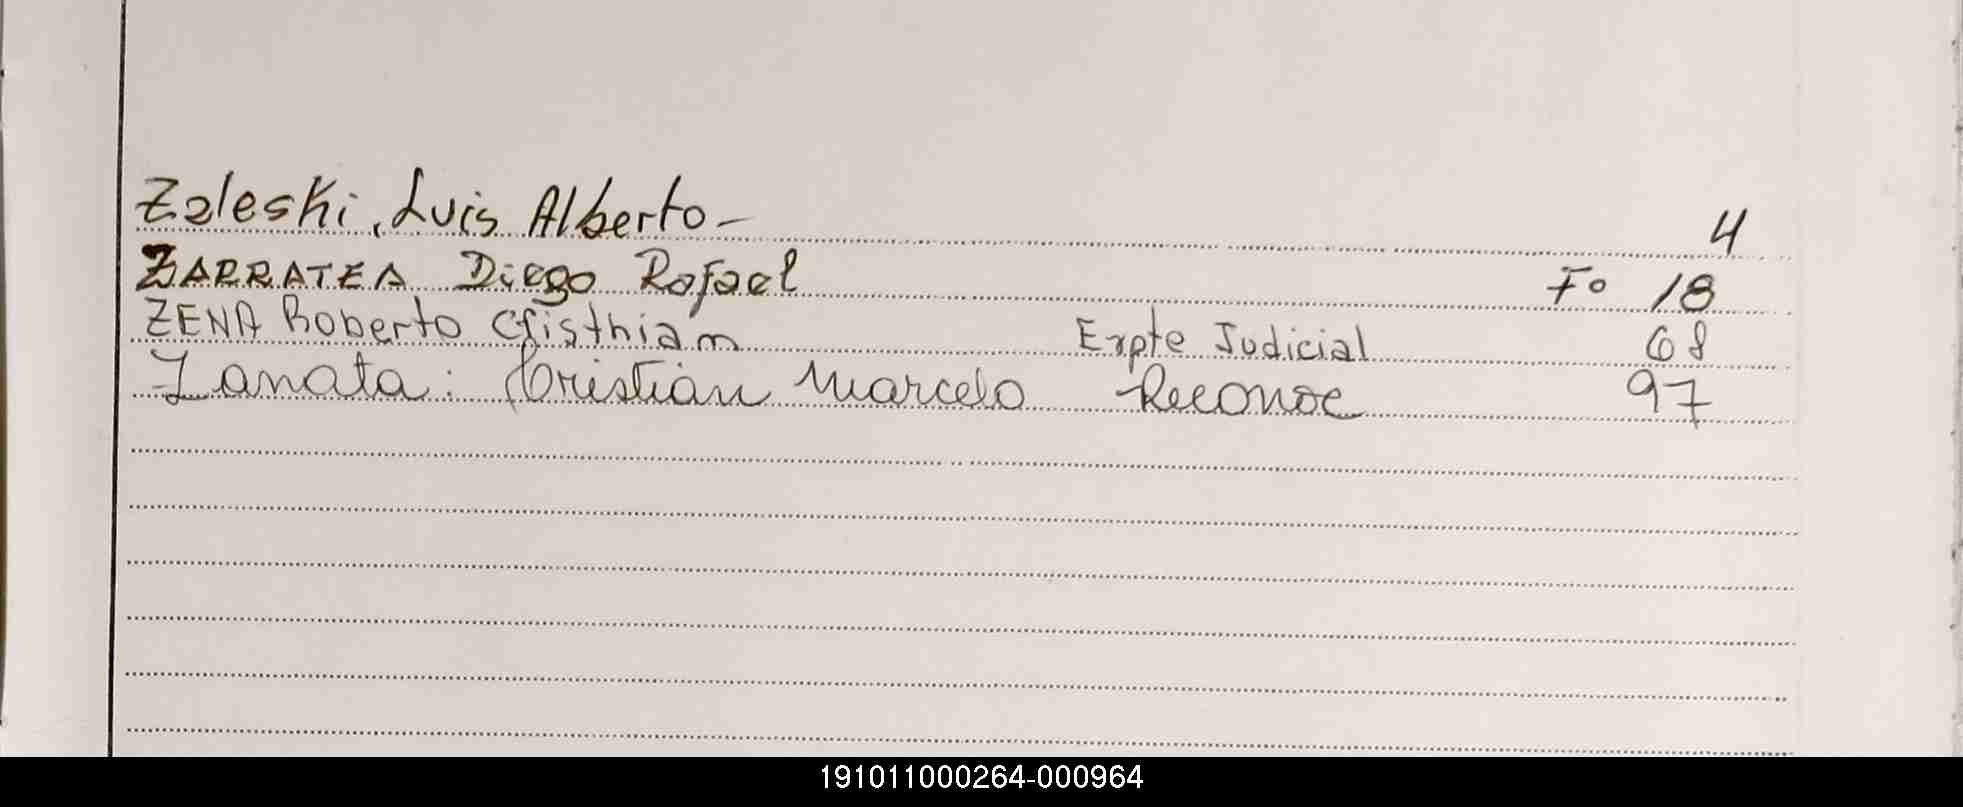 Zaleski, Luis Alberto - 4
ZARRATEA Diego Rafael Fo 18
ZENA Roberto Cristhiam Expte Judicial 68
Zanata: Cristian Marcelo Reconoc 97
191011000264-000964